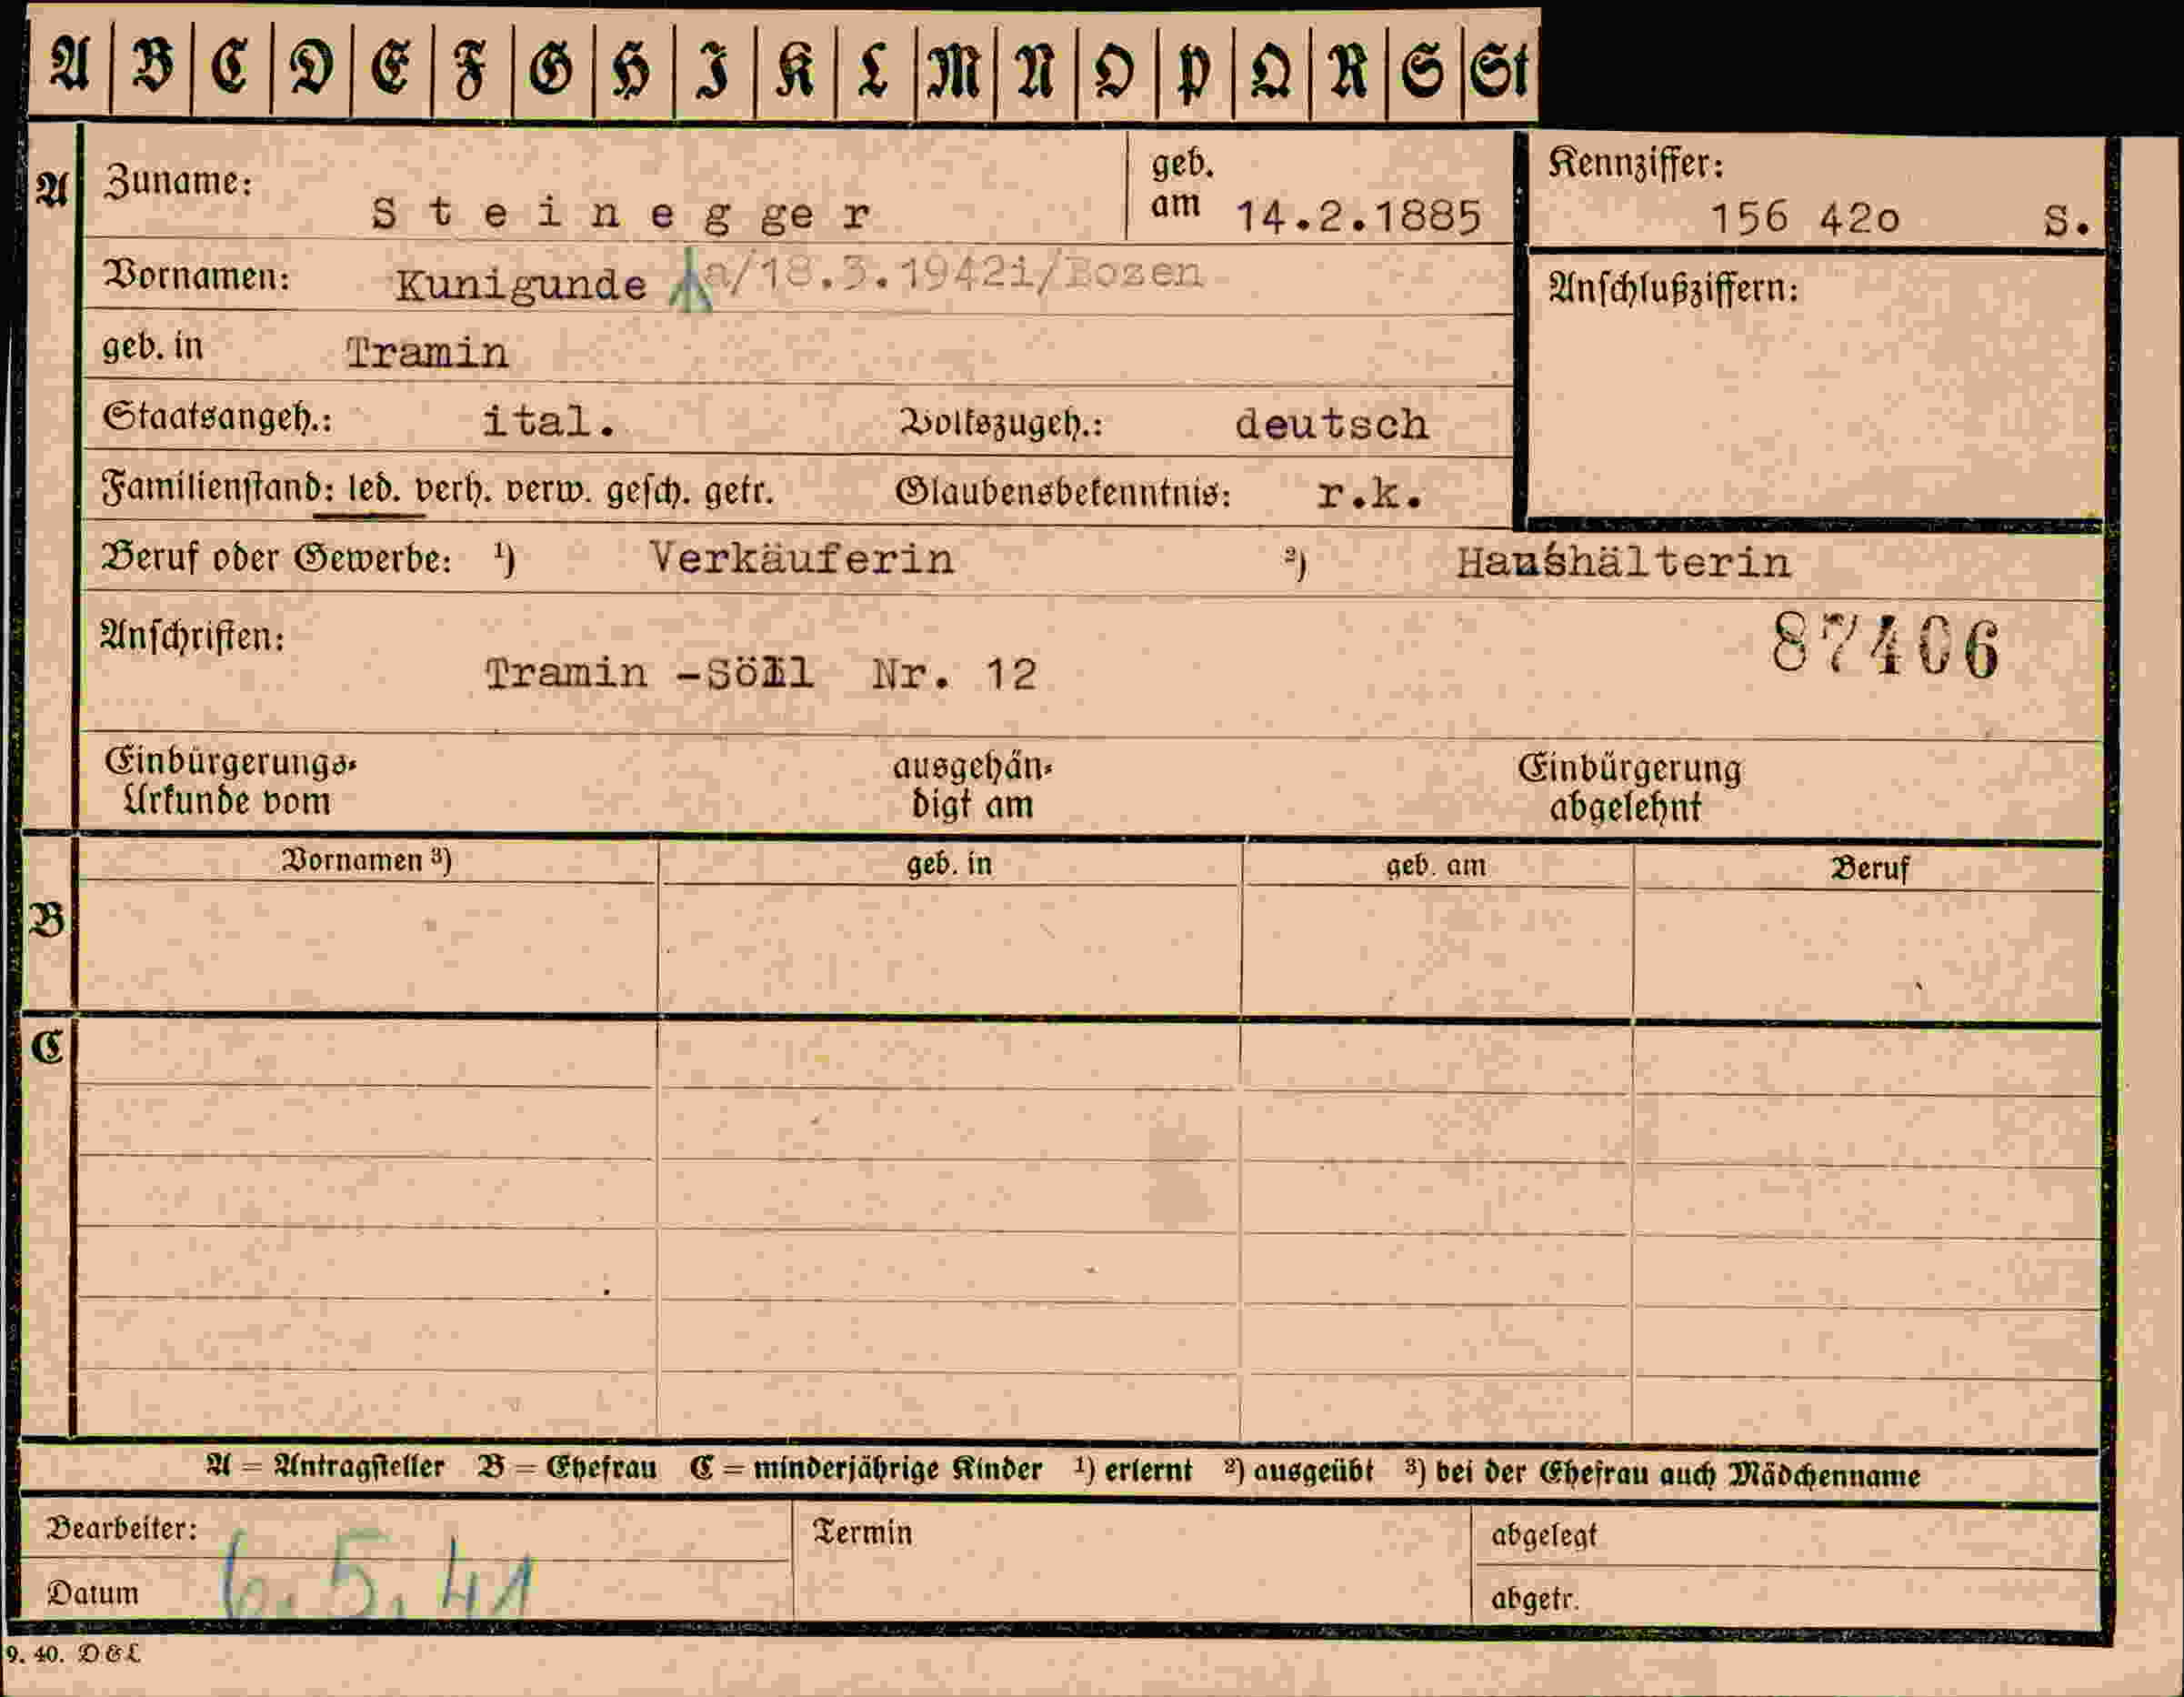 A B C D E F G H I K L M N O P Q R S St
A Zuname: Steinegger geb. am 14.2.1885 Kennziffer: 156 42o S.
Vornamen: Kunigunde a/18.3.1942i/Bozen Anschlußziffern:
geb. in Tramin
Staatsangeh.: ital. Volkszugeh.: deutsch
Familienstand: led. verh. verw. gesch. getr. Glaubensbekenntnis: r.k.
Beruf oder Gewerbe: ¹) Verkäuferin ²) Haushälterin
Anschriften: 87406
Tramin -Söll Nr. 12
Einbürgerungs- ausgehän- Einbürgerung
Urkunde vom digt am abgelehnt
Vornamen ³) geb. in geb. am Beruf
B
C
A = Antragsteller B = Ehefrau C = minderjährige Kinder ¹) erlernt ²) ausgeübt ³) bei der Ehefrau auch Mädchenname
Bearbeiter: Termin abgelegt
Datum 6.5.41 abgetr.
9. 40. D&L